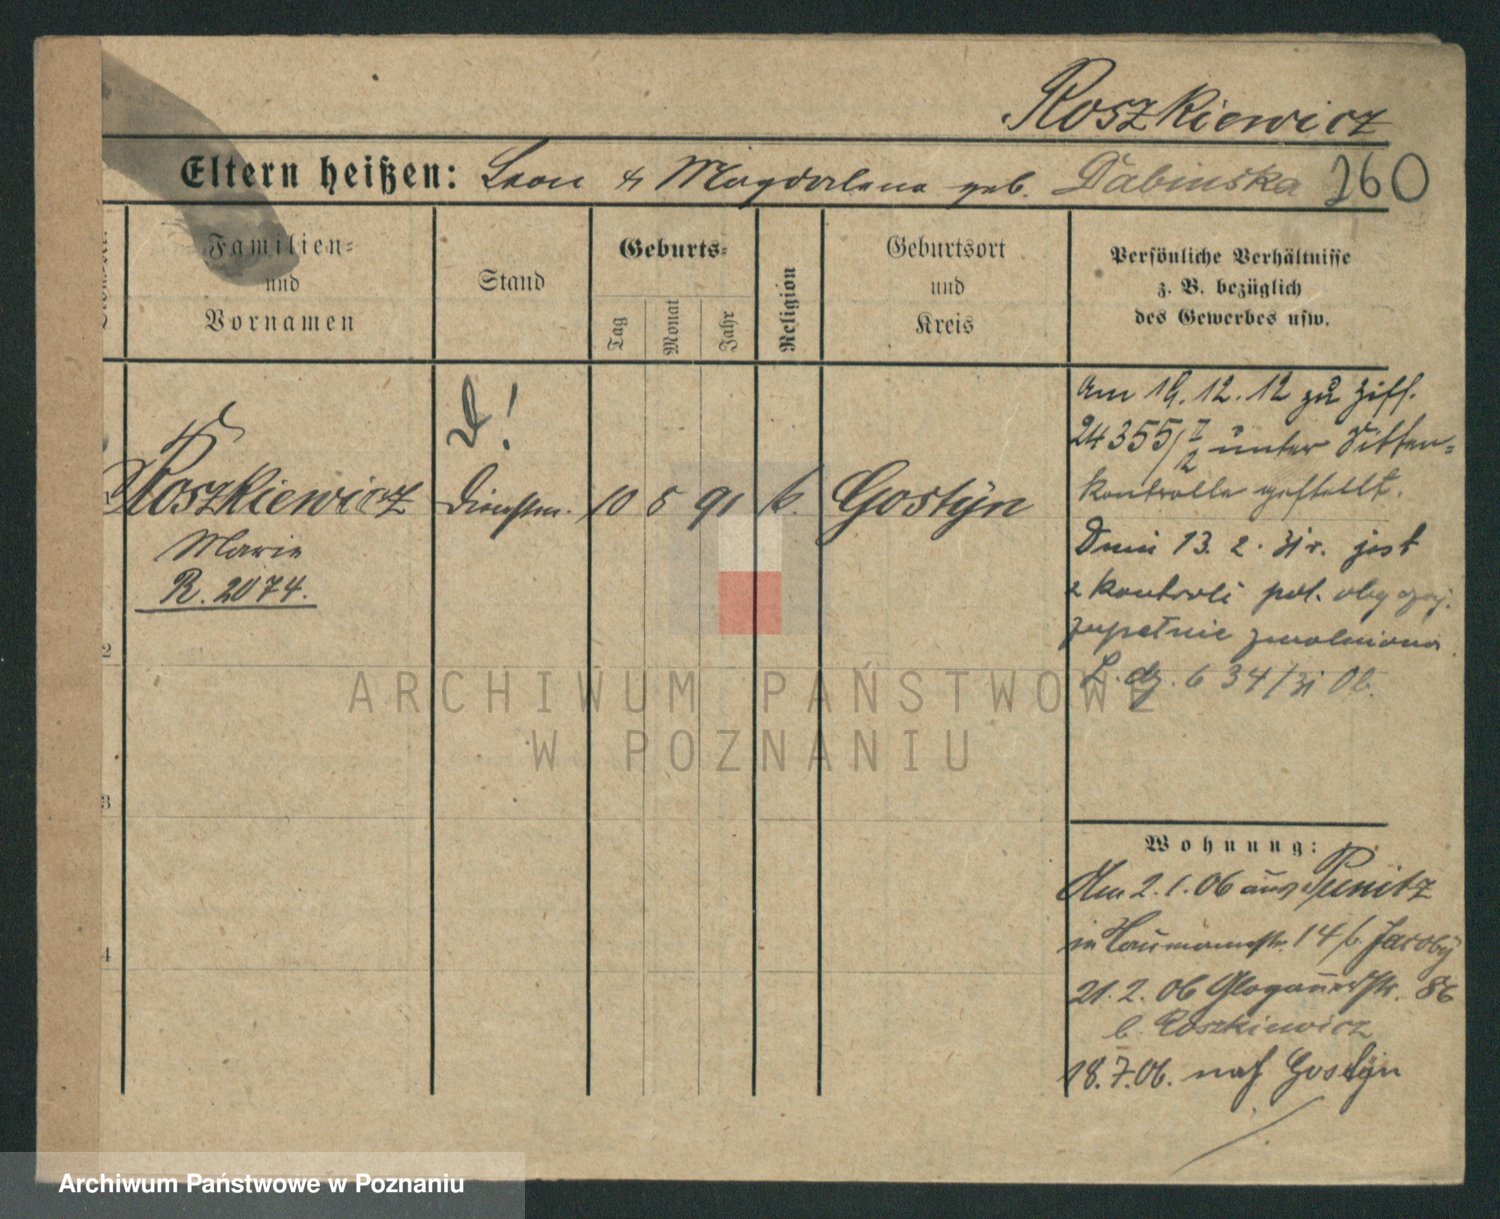 Roszkiewicz
Eltern heißen: Leon & Magdalena geb. Dabinska 260
Familien-
und
Vornamen
Stand
Geburts-
Tag
Monat
Jahr
Religion
Geburtsort
und
Kreis
Persönliche Verhältnisse
z. B. bezüglich
des Gewerbes usw.
Roszkiewicz
Marie
R. 2074.
D!
Dienstm. 10 8 91 k. Gostÿn
Am 19.12.12 zu Ziff.
24355/ I/2 unter Sitten-
kontrolle gestellt.
Dnia 13. 2. 31 r. jest
z kontroli pol. obyczaj.
zupełnie zwolniona.
L. dz. 634/31 Ob.
2
3
4
Wohnung:
Am 2.1.06 aus Punitz
in Naumannstr. 14 b. Jacoby
21.2.06 Glogauerstr. 86
b. Roszkiewicz
18.7.06. nach Gostÿn
ARCHIWUM PAŃSTWOWE
W POZNANIU
Archiwum Państwowe w Poznaniu